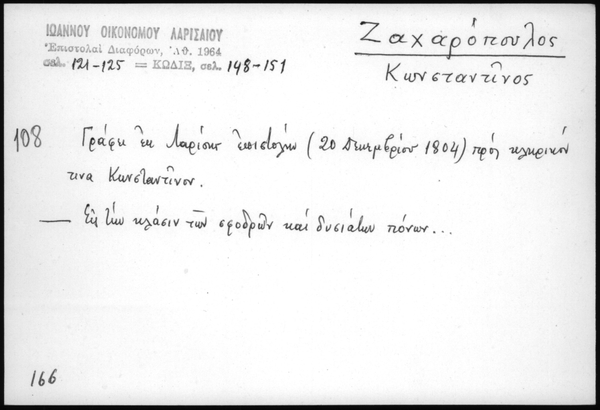 ΙΩΑΝΝΟΥ ΟΙΚΟΝΟΜΟΥ ΛΑΡΙΣΑΙΟΥ
Ἐπιστολαὶ Διαφόρων, Ἀθ. 1964
σελ. 121-125 = ΚΩΔΙΞ, σελ. 148-151
Ζαχαρόπουλος
Κωνσταντῖνος
108 Γράφει ἐκ Λαρίσης ἐπιστολὴν (20 Δεκεμβρίου 1804) πρὸς κληρικόν
τινα Κωνσταντῖνον.
— τὴν κλάσιν τῶν σφοδρῶν καὶ πόνων...
166